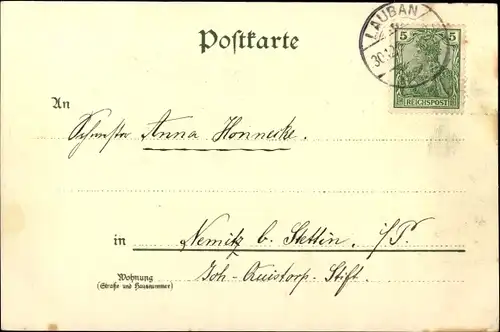 LAUBAN
Postkarte
5 5
REICHSPOST
An
Schwester Anna Honnecke.
in Nemitz b. Stettin, i/P.
Wohnung Joh. Quistorp. Stift.
(Straße und Hausnummer)